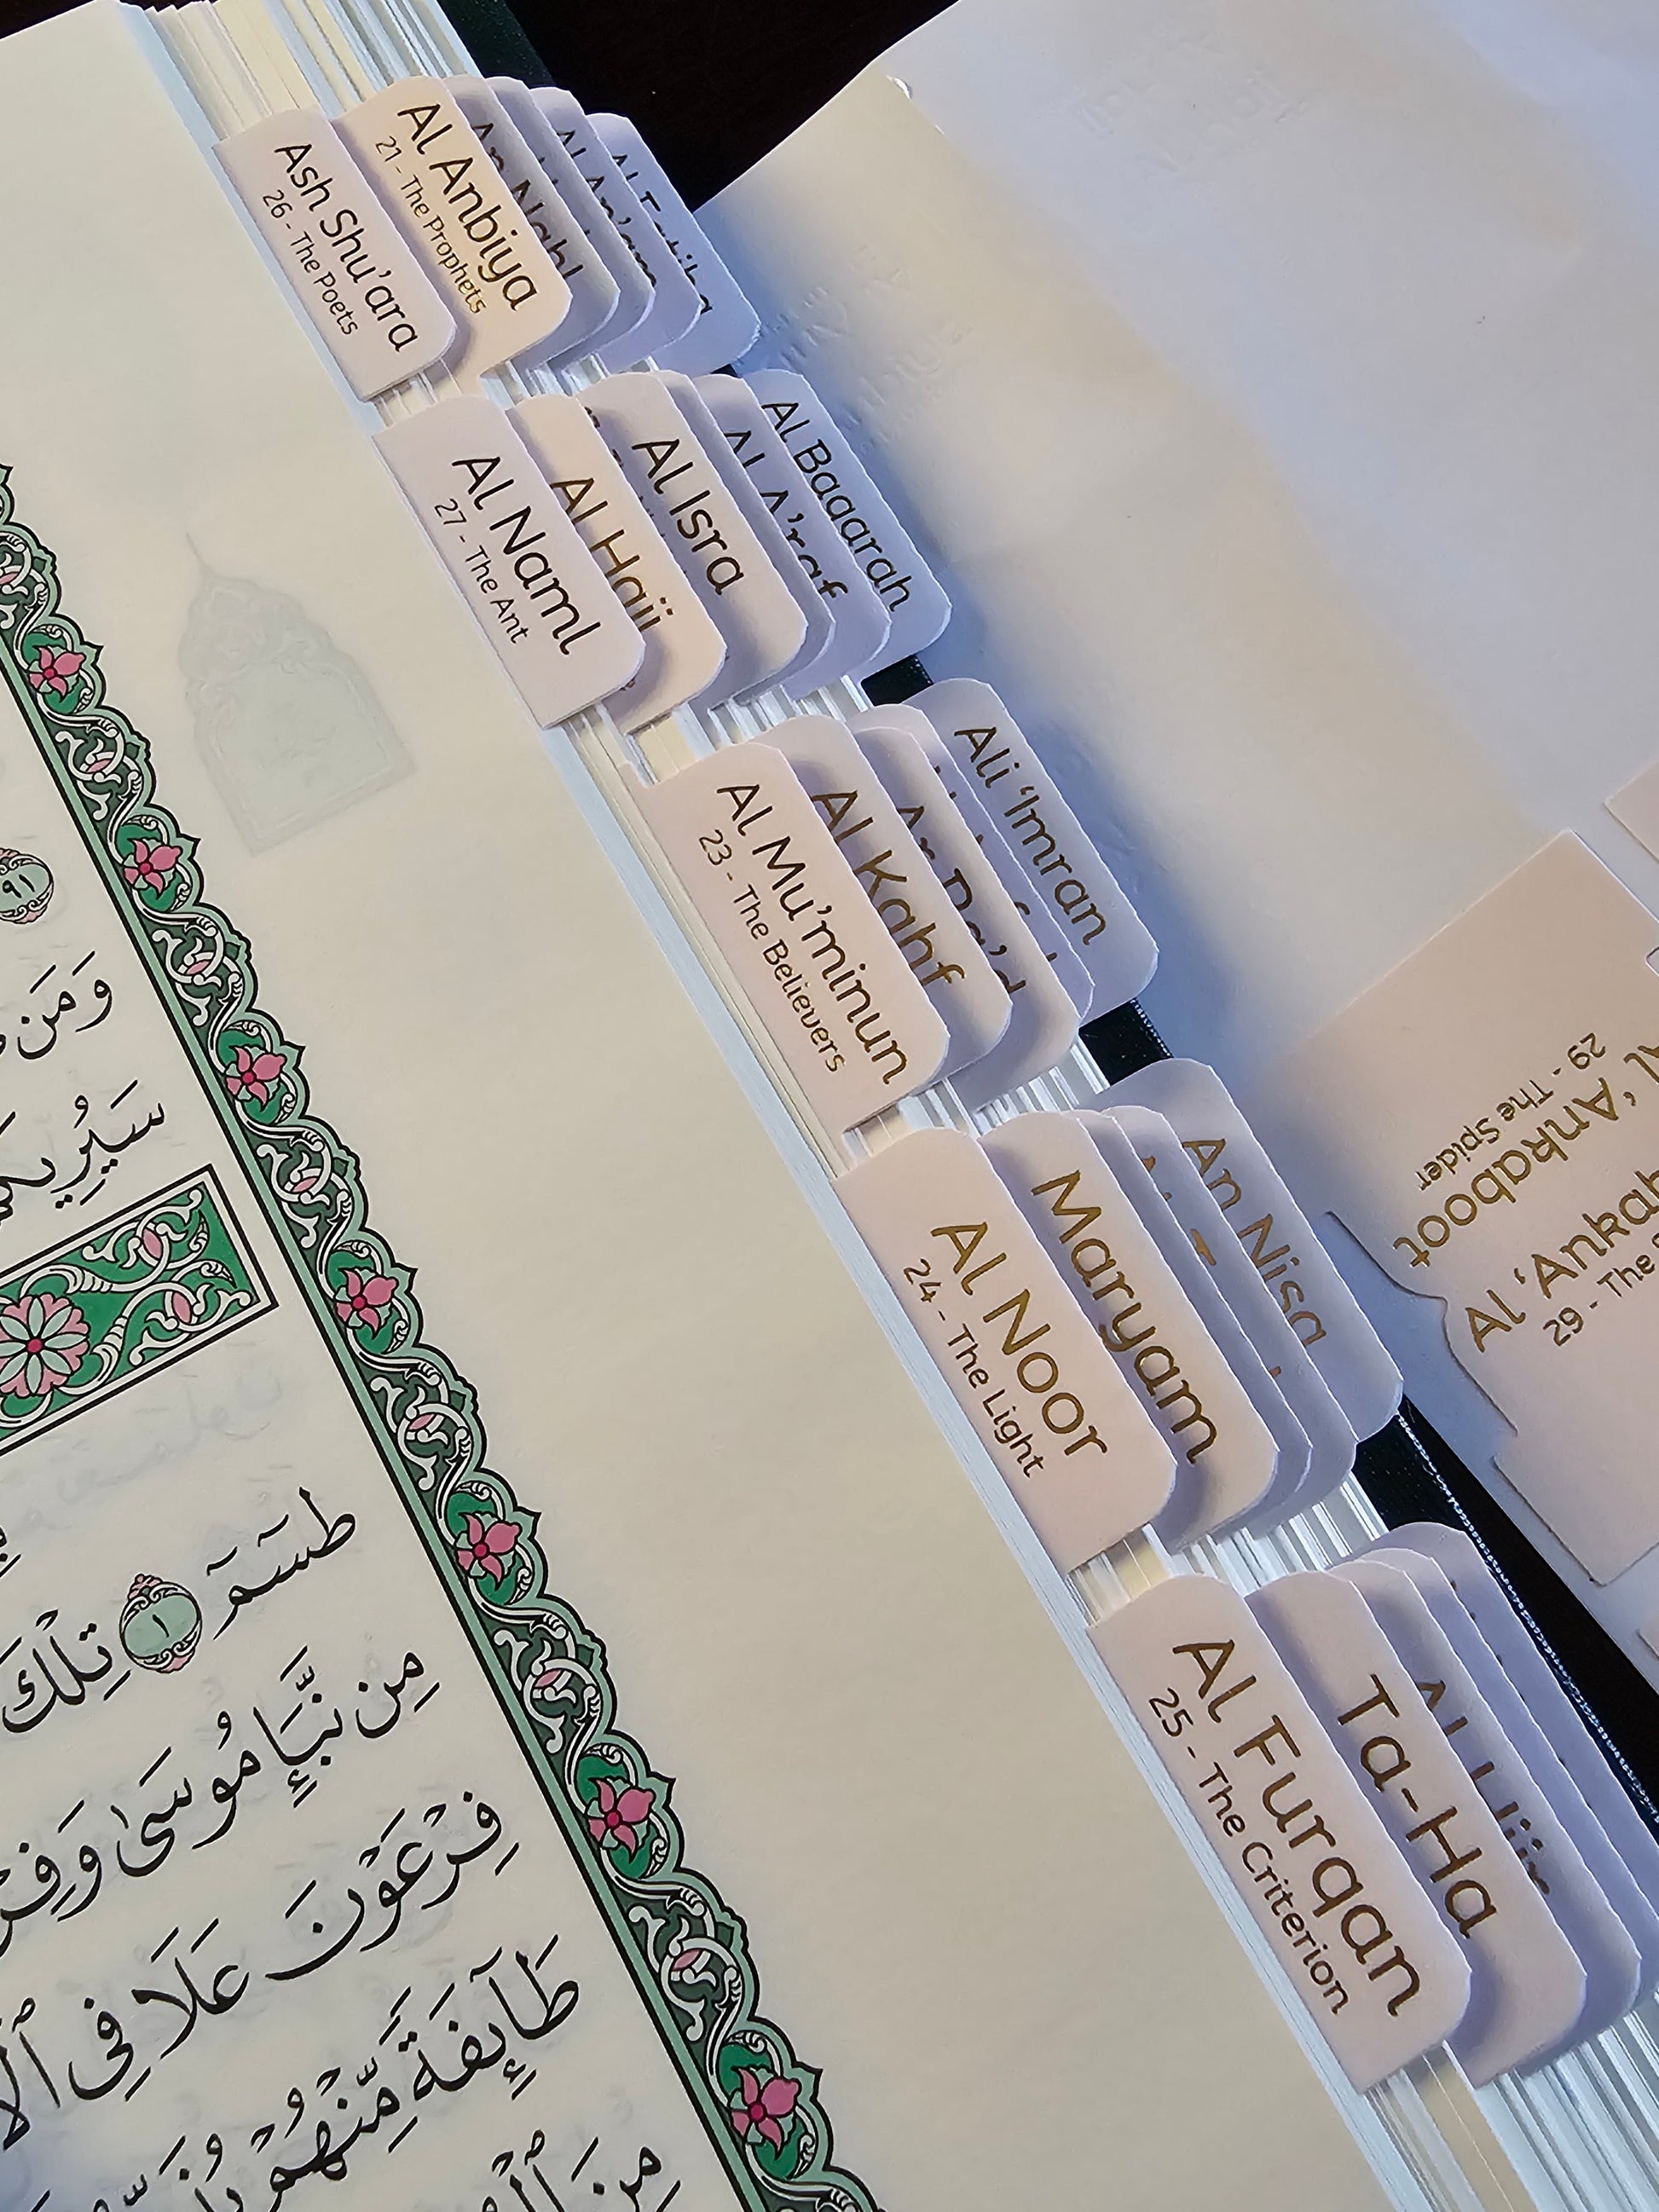 Ash Shu'ara
26 - The Poets
Al Anbiya
21 - The Prophets
An Nahl
Al An'am
Al Fatiha
Al Naml
27 - The Ant
Al Hajj
Al Isra
Al A'raf
Al Baqarah
Al Mu'minun
23 - The Believers
Al Kahf
Ar Ra'd
Ali 'Imran
Al Noor
24 - The Light
Maryam
An Nisa
Al Furqan
25 - The Criterion
Ta-Ha
Al Hijr
Al 'Ankaboot
29 - The Spider
Al 'Ankab
29 - The
٩١
وَمَن
سَيُرِيكُمْ
طسٓمٓ ١ تِلْكَ
مِن نَّبَإِ مُوسَىٰ وَفِرْ
فِرْعَوْنَ عَلَا فِى ٱلْأ
طَآئِفَةً مِّنْهُمْ يُذَبِّ
مِنَ ٱلْ